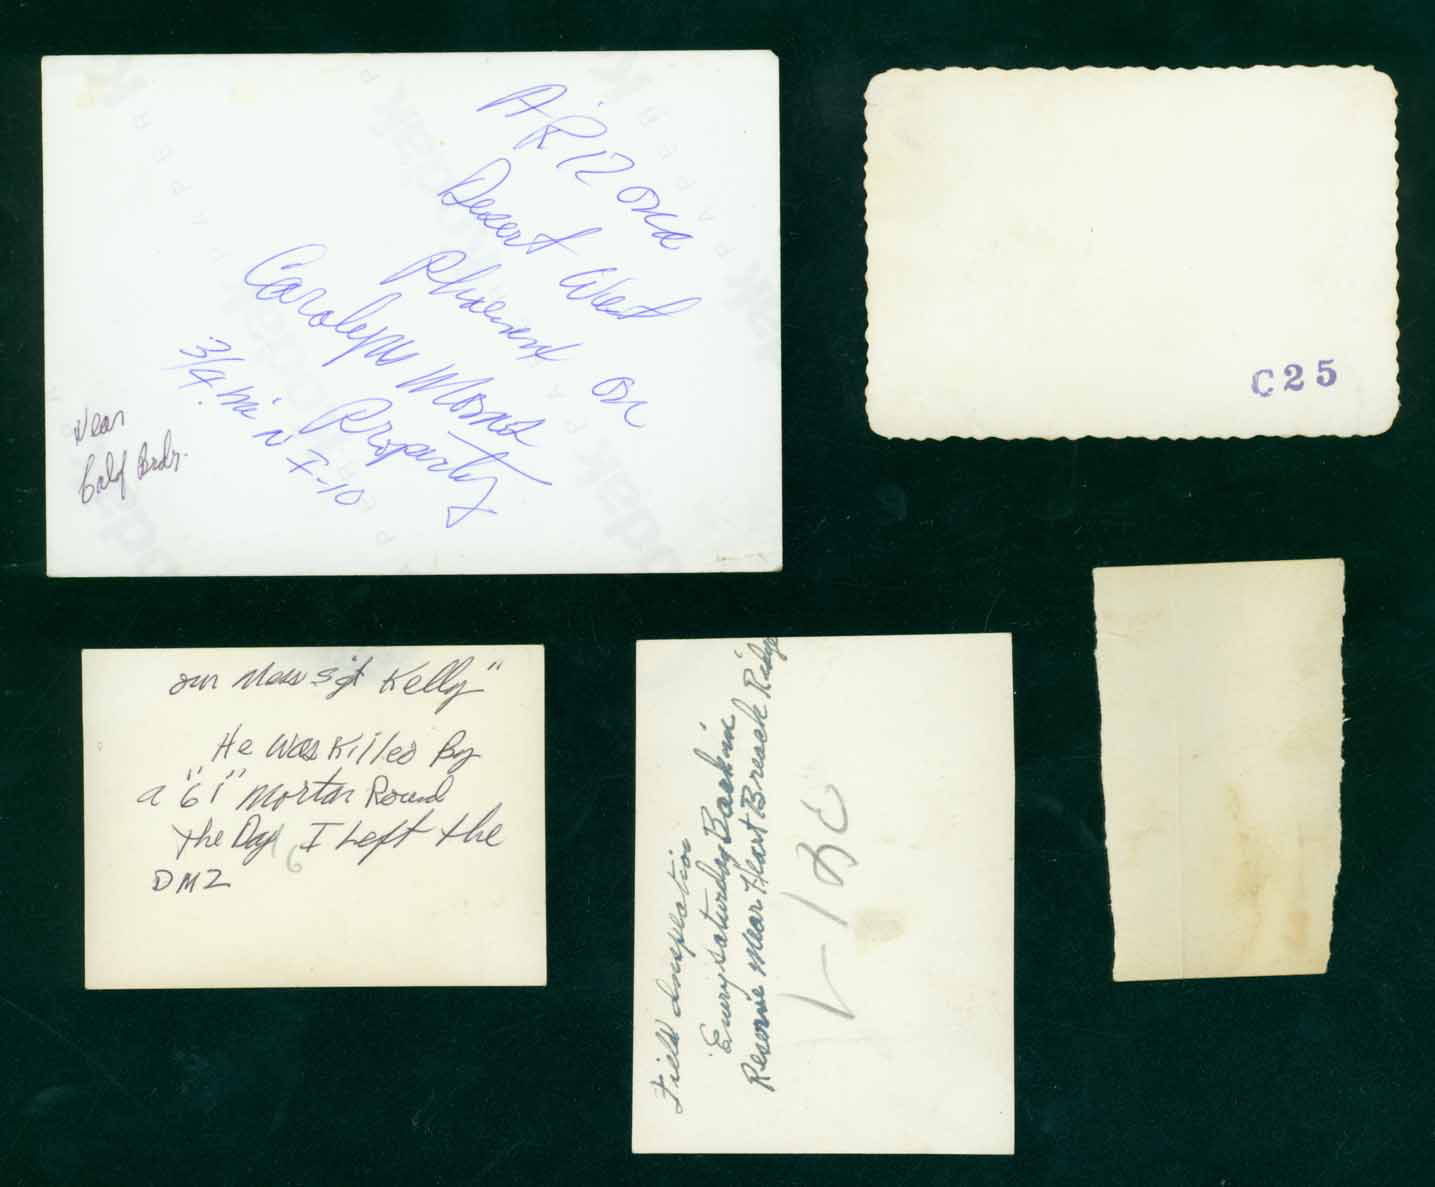 ARIZona
Desert West
Phoenix on
Carolyns Moms
Property
3/4 mi N I-10
Near
Calif Brdr.
C25
our Mess Sgt Kelly"
He Was Killed By
a "61" Mortar Round
the Day I Left the
DMZ
6
Field Inspection
Every Saturday Back in
Reserve near Heart Breack Ridge